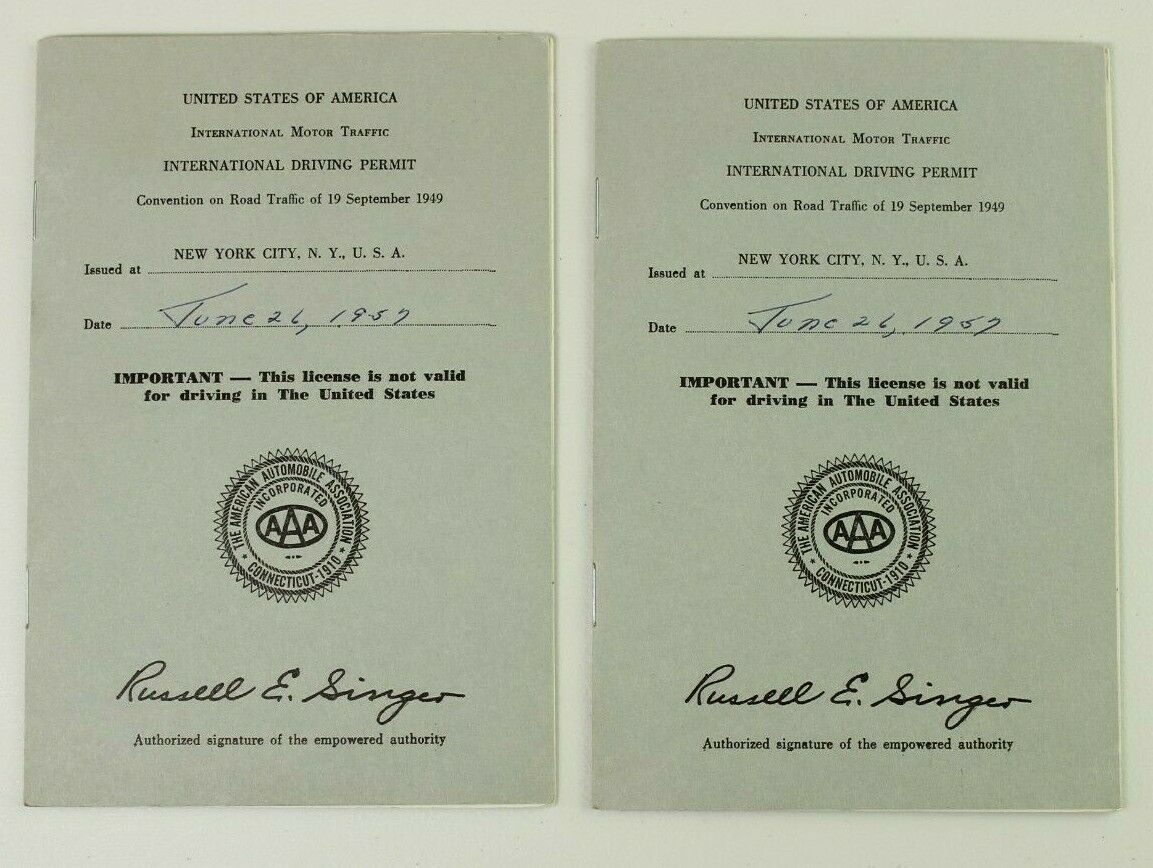 UNITED STATES OF AMERICA
INTERNATIONAL MOTOR TRAFFIC
INTERNATIONAL DRIVING PERMIT
Convention on Road Traffic of 19 September 1949
NEW YORK CITY, N. Y., U. S. A.
Issued at
Date June 26, 1957
IMPORTANT — This license is not valid
for driving in The United States
THE AMERICAN AUTOMOBILE ASSOCIATION
INCORPORATED
AAA
CONNECTICUT-1910
Russell E. Singer
Authorized signature of the empowered authority
UNITED STATES OF AMERICA
INTERNATIONAL MOTOR TRAFFIC
INTERNATIONAL DRIVING PERMIT
Convention on Road Traffic of 19 September 1949
NEW YORK CITY, N. Y., U. S. A.
Issued at
Date June 26, 1957
IMPORTANT — This license is not valid
for driving in The United States
THE AMERICAN AUTOMOBILE ASSOCIATION
INCORPORATED
AAA
CONNECTICUT-1910
Russell E. Singer
Authorized signature of the empowered authority